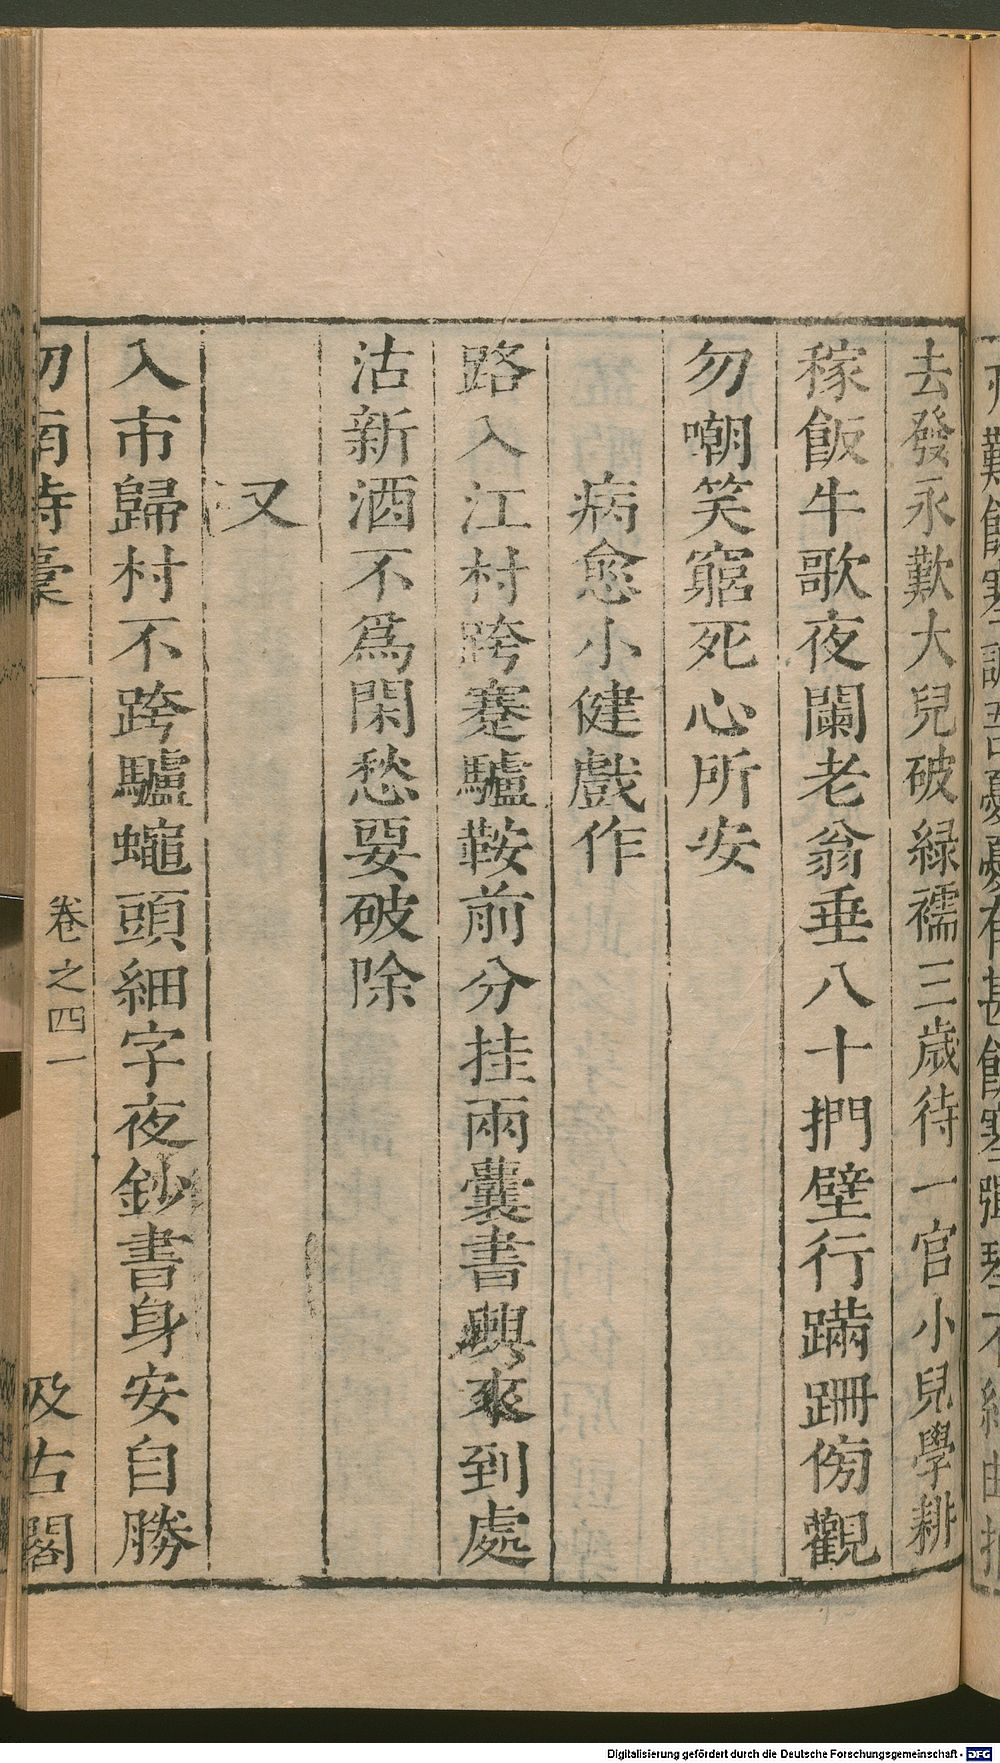 去發永歎大兒破緑襦三歲待一官小兒學耕
稼飯牛歌夜闌老翁垂八十捫壁行蹣跚傍觀
勿嘲笑窮死心所安
病愈小健戲作
路入江村跨蹇驢鞍前分挂兩囊書興來到處
沽新酒不爲閑愁要破除
又
入市歸村不跨驢蠅頭細字夜鈔書身安自勝
劍南詩稾
卷之四一
汲古閣
Digitalisierung gefördert durch die Deutsche Forschungsgemeinschaft - DFG